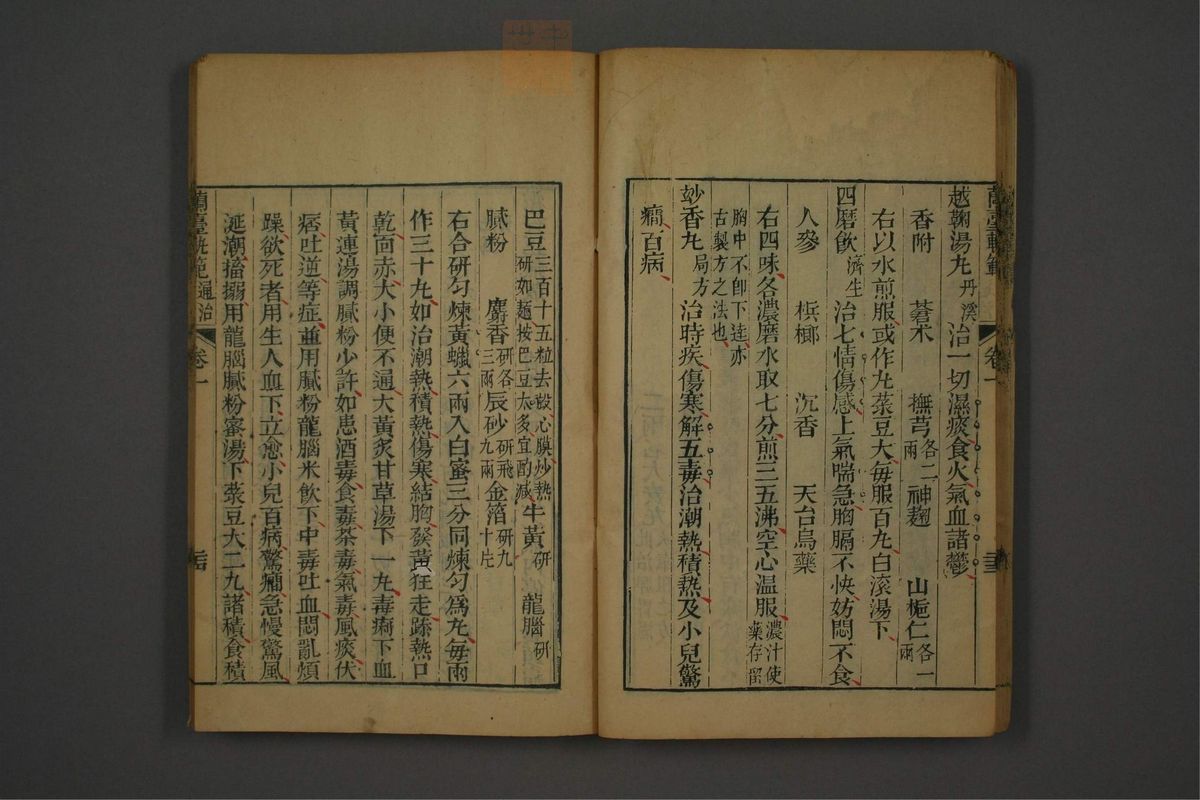 蘭臺軌範 卷一 三十三
越鞠湯丸 丹溪 治一切濕痰食火氣血諸鬱
香附 蒼术 撫芎各二兩 神麴 山梔仁各一兩
右以水煎服或作丸菉豆大每服百丸白滾湯下
四磨飲 濟生 治七情傷感上氣喘急胸膈不快妨悶不食
人參 梹榔 沉香 天台烏藥
右四味各濃磨水取七分煎三五沸空心温服濃汁使藥存留
胸中不卽下達亦古製方之法也
玅香丸 局方 治時疾傷寒解五毒治潮熱積熱及小兒驚
癇百病
巴豆三百十五粒去殼心膜炒熱研如麵按巴豆太多宜酌減 牛黃研 龍腦研
膩粉 麝香研各三兩 辰砂研飛九兩 金箔研九十片
右合研匀煉黃蠟六兩入白蜜三分同煉匀爲丸每兩
作三十丸如治潮熱積熱傷寒結胸發黃狂走躁熱口
乾面赤大小便不通大黃炙甘草湯下一丸毒痢下血
黃連湯調膩粉少許如患酒毒食毒茶毒氣毒風痰伏
痞吐逆等症並用膩粉龍腦米飲下中毒吐血悶亂煩
躁欲死者用生人血下立愈小兒百病驚癇急慢驚風
涎潮搐搦用龍腦膩粉蜜湯下菉豆大二丸諸積食積
蘭臺軌範 通治 卷一 三十四